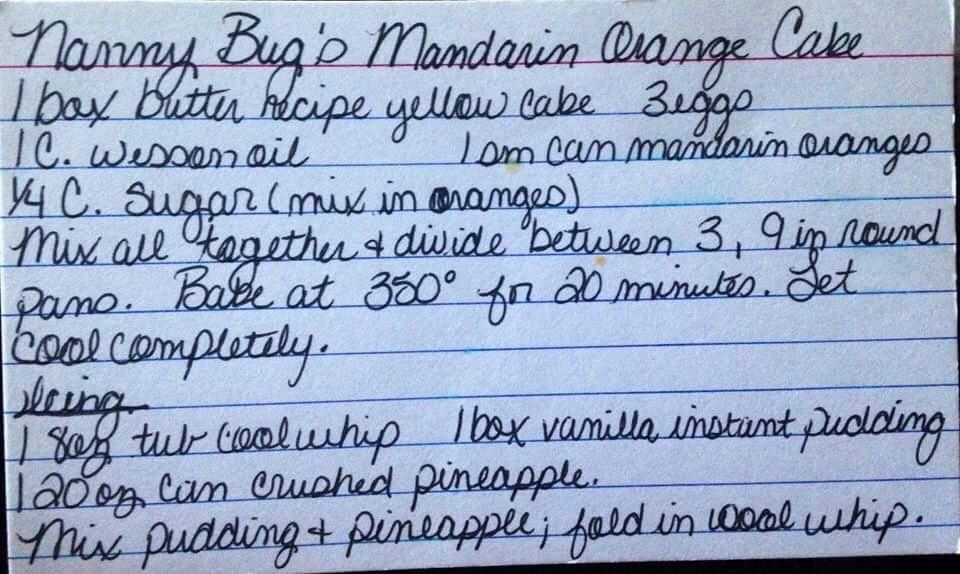 Nanny Bug's Mandarin Orange Cake
1 box butter recipe yellow cake 3 eggs
1 C. wesson oil 1 sm can mandarin oranges
1/4 C. Sugar (mix in oranges)
Mix all together & divide between 3, 9 in round
pans. Bake at 350° for 20 minutes. Let
Cool completely.
Icing
1 8oz tub cool whip 1 box vanilla instant pudding
1 20 oz can crushed pineapple.
Mix pudding & pineapple; fold in cool whip.